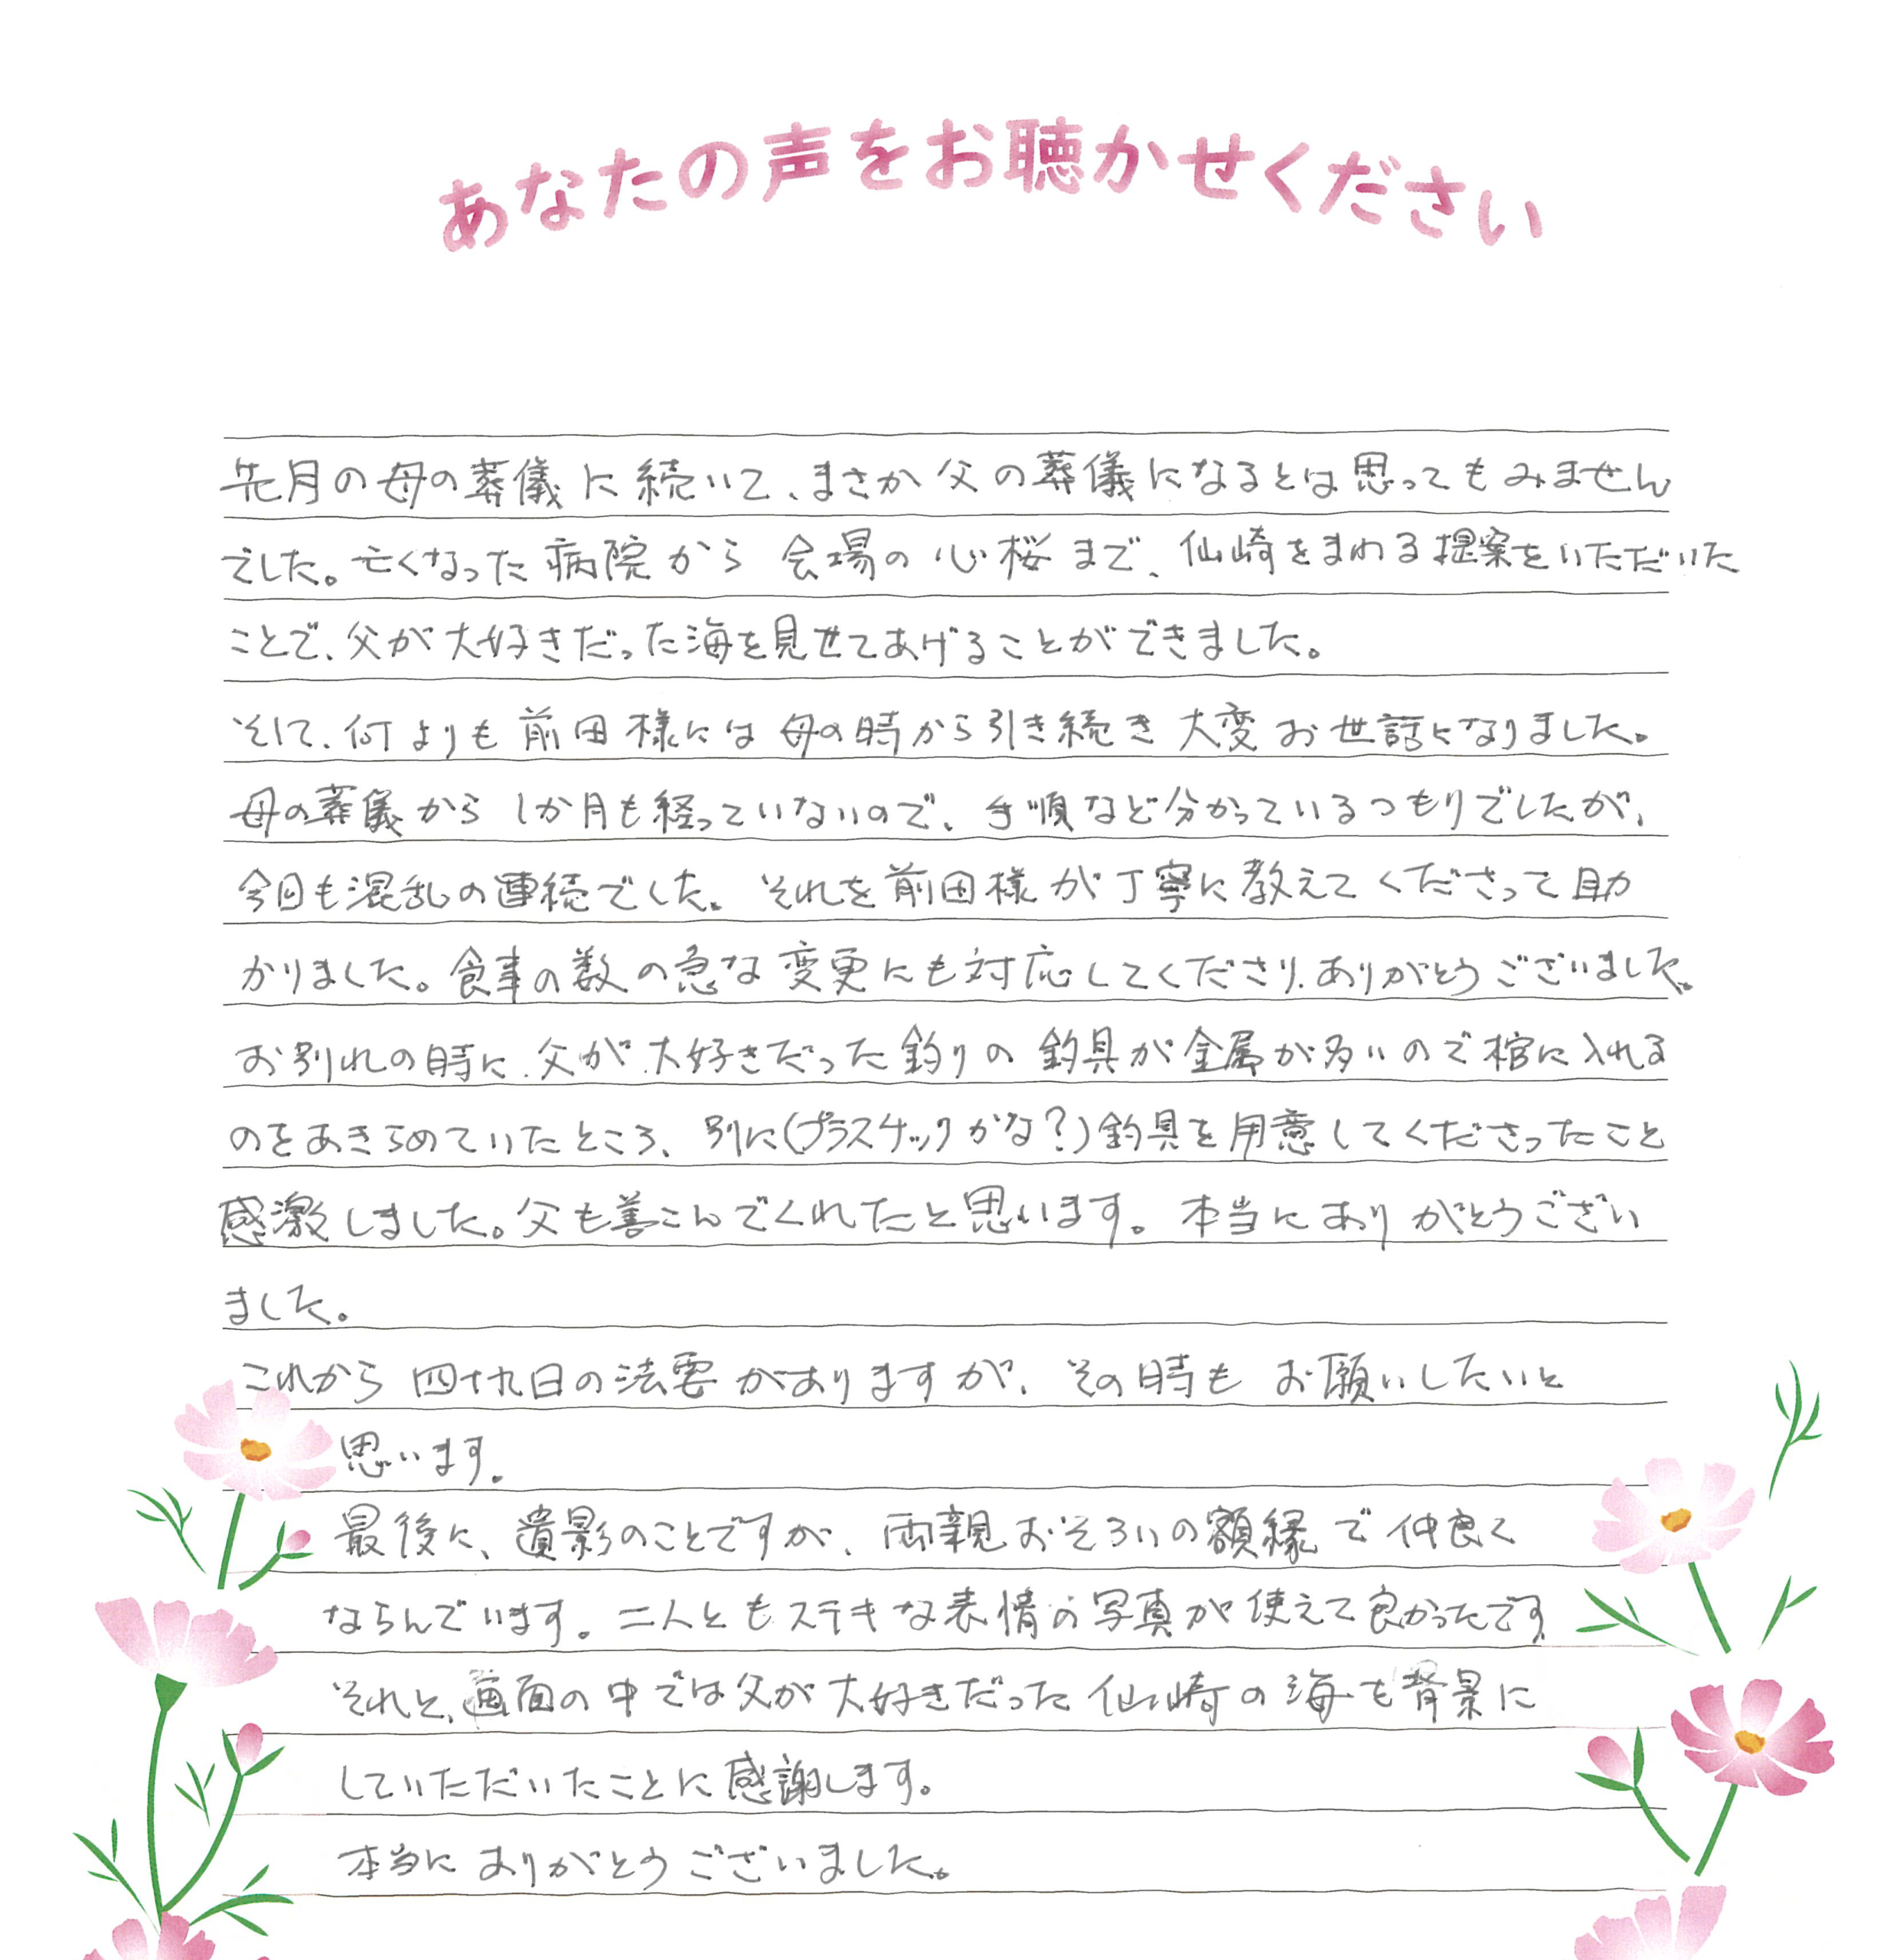 あなたの声をお聴かせください
先月の母の葬儀に続いて、まさか父の葬儀になるとは思ってもみません
でした。亡くなった病院から会場の心桜まで、仙崎をまわる提案をいただいた
ことで、父が大好きだった海を見せてあげることができました。
そして、何よりも前田様には母の時から引き続き大変お世話になりました。
母の葬儀から1か月も経っていないので、手順など分かっているつもりでしたが、
今回も混乱の連続でした。それを前田様が丁寧に教えてくださって助
かりました。食事の数の急な変更にも対応してくださり、ありがとうございました。
お別れの時に、父が大好きだった釣りの釣具が金属が多いので棺に入れる
のをあきらめていたところ、別に(プラスチックかな?)釣具を用意してくださったこと
感激しました。父も喜こんでくれたと思います。本当にありがとうござい
ました。
これから四十九日の法要がありますが、その時もお願いしたいと
思います。
最後に、遺影のことですが、両親おそろいの額縁で仲良く
ならんでいます。二人ともステキな表情の写真が使えて良かったです。
それと、画面の中では父が大好きだった仙崎の海を背景に
していただいたことに感謝します。
本当にありがとうございました。